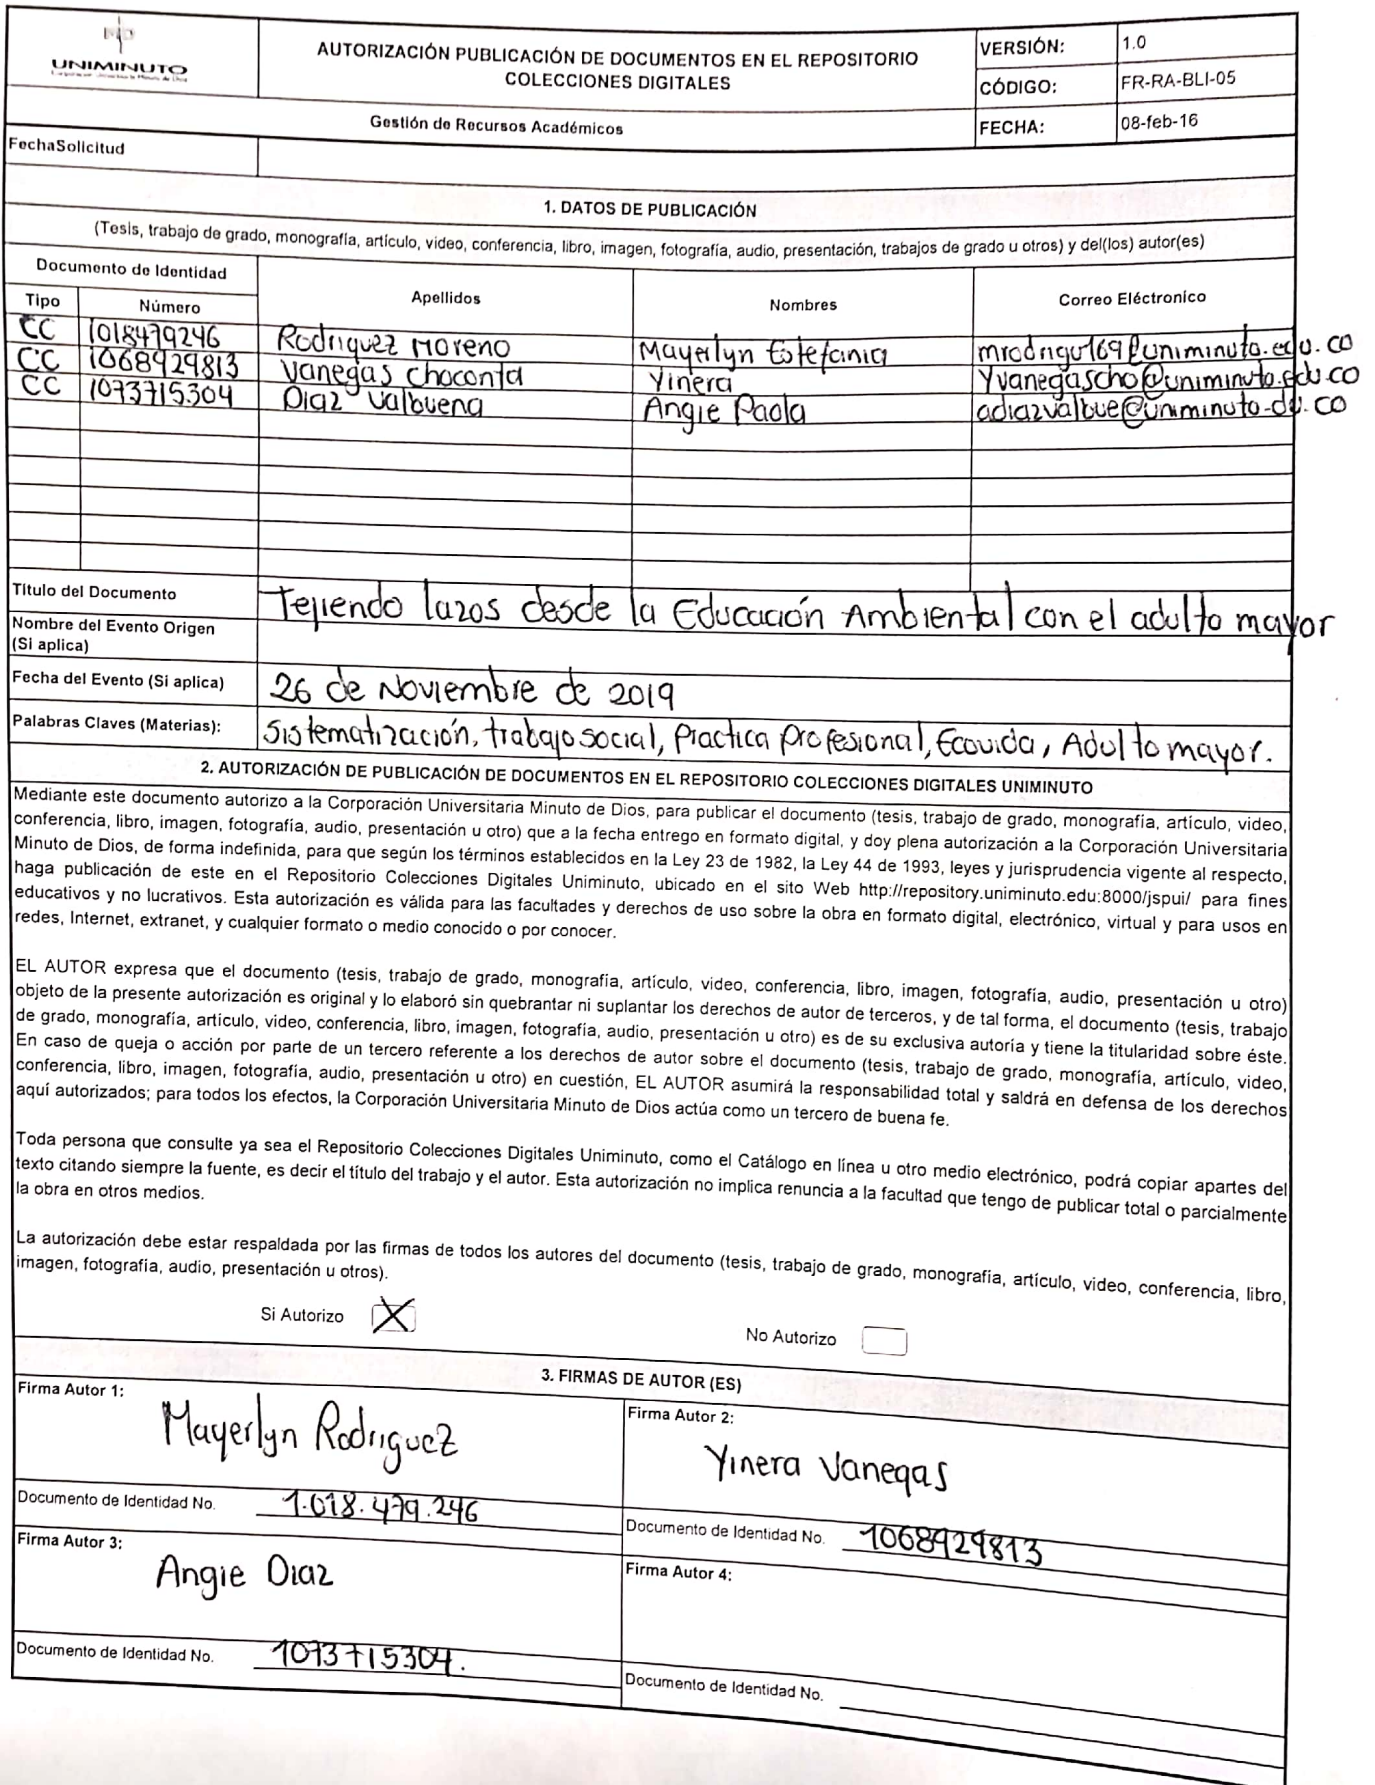 UNIMINUTO
AUTORIZACIÓN PUBLICACIÓN DE DOCUMENTOS EN EL REPOSITORIO
COLECCIONES DIGITALES
VERSIÓN: 1.0
CÓDIGO: FR-RA-BLI-05
Gestión de Recursos Académicos
FECHA: 08-feb-16
FechaSolicitud
1. DATOS DE PUBLICACIÓN
(Tesis, trabajo de grado, monografía, artículo, video, conferencia, libro, imagen, fotografía, audio, presentación, trabajos de grado u otros) y del(los) autor(es)
Documento de Identidad
Tipo Número Apellidos Nombres Correo Eléctronico
CC 1018479246 Rodriguez Moreno Mayerlyn Estefania mrodrigu169@uniminuto.edu.co
CC 1068929813 Vanegas Choconta Yinera Yvanegascho@uniminuto.edu.co
CC 1073715304 Diaz Valbuena Angie Paola adiazvalbue@uniminuto-du.co
Título del Documento Tejiendo lazos desde la Educación Ambiental con el adulto mayor
Nombre del Evento Origen
(Si aplica)
Fecha del Evento (Si aplica) 26 de Noviembre de 2019
Palabras Claves (Materias): Sistematización, trabajo social, Practica profesional, Ecovida, Adulto mayor.
2. AUTORIZACIÓN DE PUBLICACIÓN DE DOCUMENTOS EN EL REPOSITORIO COLECCIONES DIGITALES UNIMINUTO
Mediante este documento autorizo a la Corporación Universitaria Minuto de Dios, para publicar el documento (tesis, trabajo de grado, monografía, artículo, video,
conferencia, libro, imagen, fotografía, audio, presentación u otro) que a la fecha entrego en formato digital, y doy plena autorización a la Corporación Universitaria
Minuto de Dios, de forma indefinida, para que según los términos establecidos en la Ley 23 de 1982, la Ley 44 de 1993, leyes y jurisprudencia vigente al respecto,
haga publicación de este en el Repositorio Colecciones Digitales Uniminuto, ubicado en el sitio Web http://repository.uniminuto.edu:8000/jspui/ para fines
educativos y no lucrativos. Esta autorización es válida para las facultades y derechos de uso sobre la obra en formato digital, electrónico, virtual y para usos en
redes, Internet, extranet, y cualquier formato o medio conocido o por conocer.
EL AUTOR expresa que el documento (tesis, trabajo de grado, monografía, artículo, video, conferencia, libro, imagen, fotografía, audio, presentación u otro)
objeto de la presente autorización es original y lo elaboró sin quebrantar ni suplantar los derechos de autor de terceros, y de tal forma, el documento (tesis, trabajo
de grado, monografía, articulo, video, conferencia, libro, imagen, fotografía, audio, presentación u otro) es de su exclusiva autoría y tiene la titularidad sobre éste.
En caso de queja o acción por parte de un tercero referente a los derechos de autor sobre el documento (tesis, trabajo de grado, monografía, artículo, video,
conferencia, libro, imagen, fotografía, audio, presentación u otro) en cuestión, EL AUTOR asumirá la responsabilidad total y saldrá en defensa de los derechos
aquí autorizados; para todos los efectos, la Corporación Universitaria Minuto de Dios actúa como un tercero de buena fe.
Toda persona que consulte ya sea el Repositorio Colecciones Digitales Uniminuto, como el Catálogo en línea u otro medio electrónico, podrá copiar apartes del
texto citando siempre la fuente, es decir el título del trabajo y el autor. Esta autorización no implica renuncia a la facultad que tengo de publicar total o parcialmente
la obra en otros medios.
La autorización debe estar respaldada por las firmas de todos los autores del documento (tesis, trabajo de grado, monografía, artículo, video, conferencia, libro,
imagen, fotografía, audio, presentación u otros).
Si Autorizo X No Autorizo
3. FIRMAS DE AUTOR (ES)
Firma Autor 1: Firma Autor 2:
Mayerlyn Rodriguez Yinera Vanegas
Documento de Identidad No. 1.018.479.246 Documento de Identidad No. 1068929813
Firma Autor 3: Firma Autor 4:
Angie Diaz
Documento de Identidad No. 1073715304. Documento de Identidad No.